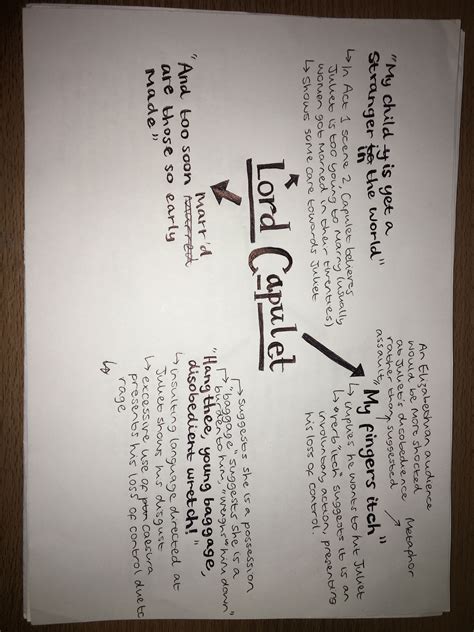 "My child is yet a
stranger in the world"
↳ In Act 1 scene 2, Capulet believes
Juliet is too young to marry (usually
women got married in their twenties)
↳ shows some care towards Juliet
"And too soon
Marr'd
are those so early
Made"
Lord Capulet
An Elizabethan audience
would be more shocked
at Juliet's disobedience
rather than suggested
assault
Metaphor
"My fingers itch"
↳ implies he wants to hit Juliet
↳ verb "itch" suggests it is an
involuntary action, presenting
his loss of control.
↱ suggests she is a possession
↱ "baggage" suggests she is a
burden to him, "weighs" him down"
"Hang thee, young baggage,
disobedient wretch!"
↳ insulting language directed at
Juliet shows his disgust
↳ excessive use of caesura
presents his loss of control due to
rage
↳